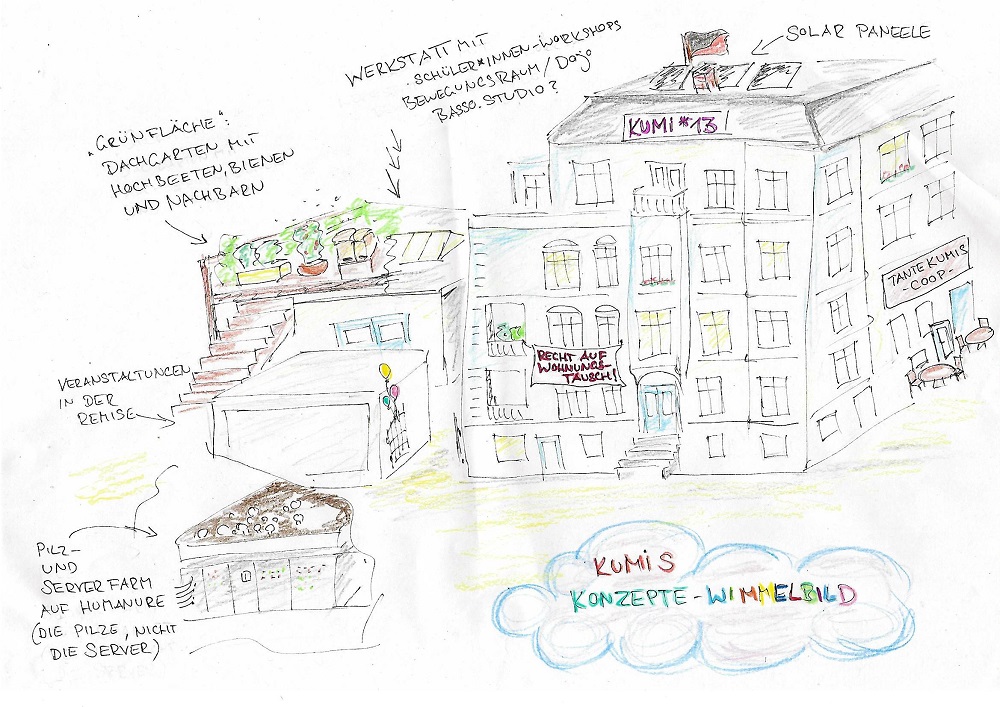 WERKSTATT MIT
. SCHÜLER*INNEN-WORKSHOPS
BEWEGUNGSRAUM / Dojo
BASSO.STUDIO?
SOLAR PANEELE
„GRÜNFLÄCHE“:
DACHGARTEN MIT
HOCHBEETEN, BIENEN
UND NACHBARN
KUMI *13
TANTE KUMIS
- COOP -
RECHT AUF
WOHNUNGS-
TAUSCH!
VERANSTALTUNGEN
IN DER
REMISE
PILZ-
UND
SERVERFARM
AUF HUMANURE
(DIE PILZE, NICHT
DIE SERVER)
KUMIS
KONZEPTE-WIMMELBILD